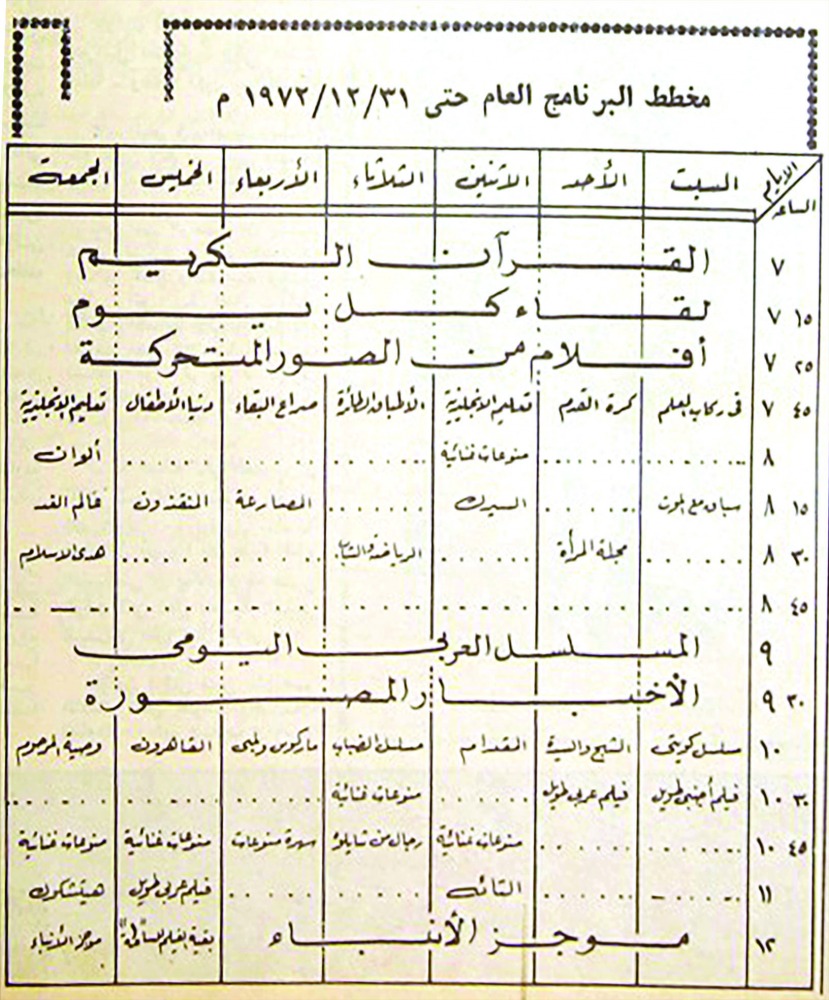 مخطط البرنامج العام حتى ١٩٧٢/١٢/٣١ م
الايام الساعه السبت الأحد الاثنين الثلاثاء الأربعاء الخميس الجمعة
٧ القرآن الكريم
٧ ١٥ لقاء كل يوم
٧ ٢٥ أفلام من الصور المتحركة
٧ ٤٥ في ركاب العلم كرة القدم تعليم الانجليزية الأطباق الطائرة صراع البقاء دنيا الأطفال تعليم الانجليزية
٨ منوعات غنائية ألوان
٨ ١٥ سباق مع الموت السيرك المصارعة المنقذون عالم الغد
٨ ٣٠ مجلة المرأة الرياضة والشباب هدى الاسلام
٨ ٤٥
٩ المسلسل العربي اليومي
٩ ٣٠ الأخبار المصورة
١٠ مسلسل كويتي الشيخ والسيرة المقدام مسلسل الضباب ماركوس ولبى القاهرون وصية المرحوم
١٠ ٣٠ فيلم أجنبي طويل فيلم عربي طويل منوعات غنائية
١٠ ٤٥ منوعات غنائية رجال من شايلو سهرة منوعات منوعات غنائية منوعات غنائية
١١ التائه فيلم عربي طويل هيتشكوك
١٢ موجز الأنباء بقية الفيلم موجز الأنباء